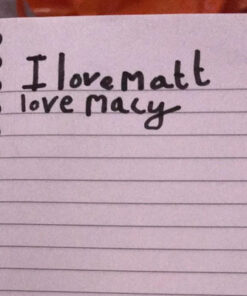 I love Matt
love Macy